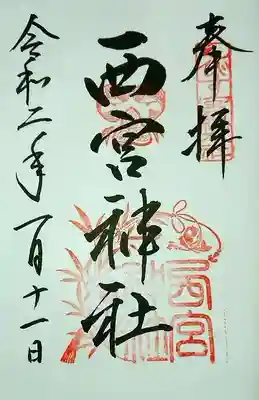 奉拝
西宮神社
令和二年一月十一日
西宮